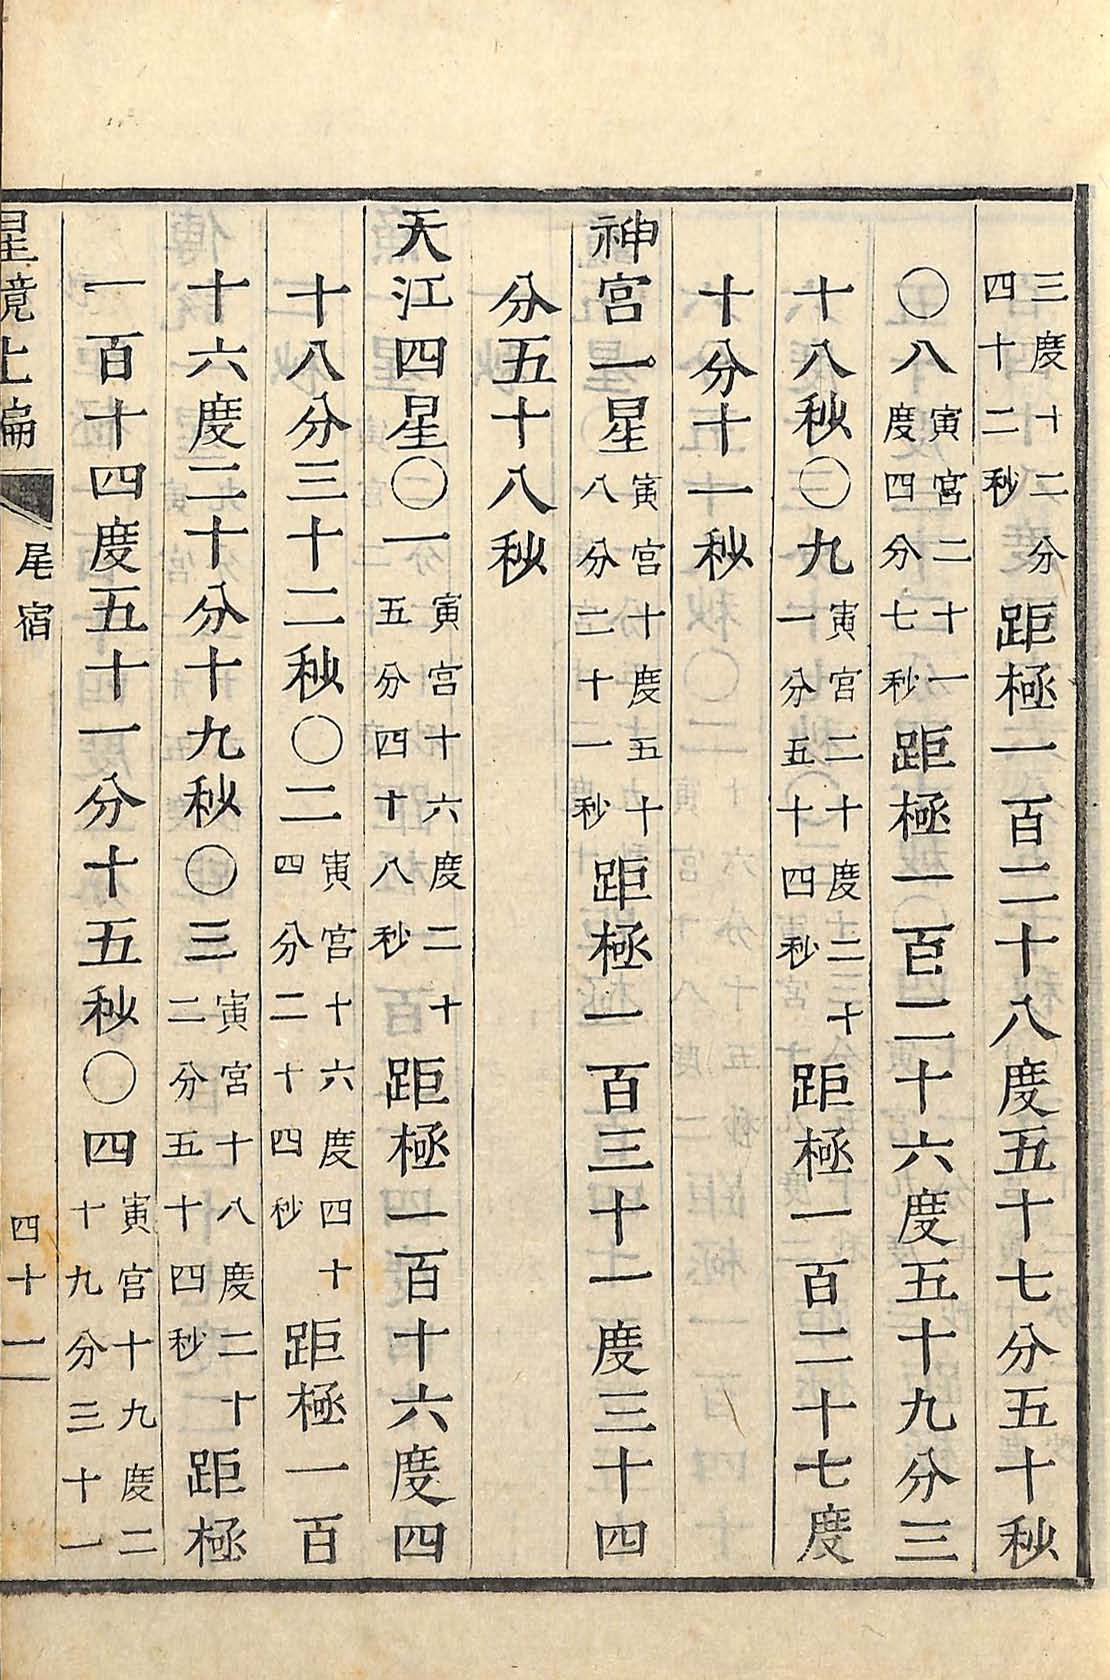 三度十二分四十二秒距極一百二十八度五十七分五十秒
〇八寅宮二十一度四分七秒距極一百二十六度五十九分三
十八秒〇九寅宮二十度二十一分五十四秒距極一百二十七度
十分十一秒
神宮一星寅宮十度五十八分二十一秒距極一百三十一度三十四
分五十八秒
天江四星〇一寅宮十六度二十五分四十八秒距極一百十六度四
十八分三十二秒〇二寅宮十六度四十四分二十四秒距極一百
十六度二十分十九秒〇三寅宮十八度二十二分五十四秒距極
一百十四度五十一分十五秒〇四寅宮十九度二十九分三十一
星鏡上編
尾宿
四十一